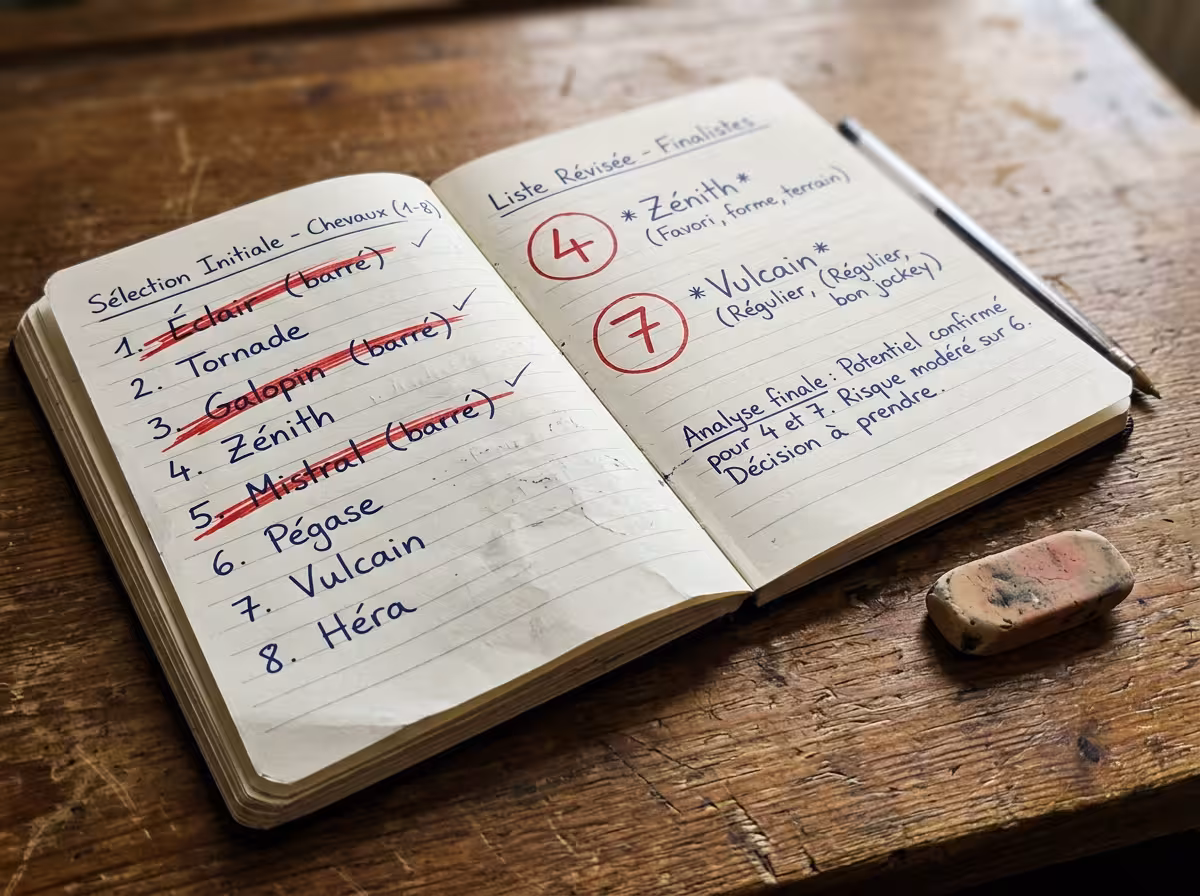 Sélection Initiale - Chevaux (1-8)
1. Éclair (barré) ✓
2. Tornade
3. Galopin (barré) ✓
4. Zénith
5. Mistral (barré) ✓
6. Pégase
7. Vulcain
8. Héra
Liste Révisée - Finalistes
4 *Zénith*
(Favori, forme, terrain)
7 *Vulcain*
(Régulier, (Régulier,
bon jockey)
Analyse finale: Potentiel confirmé
pour 4 et 7. Risque modéré sur 6.
Décision à prendre.